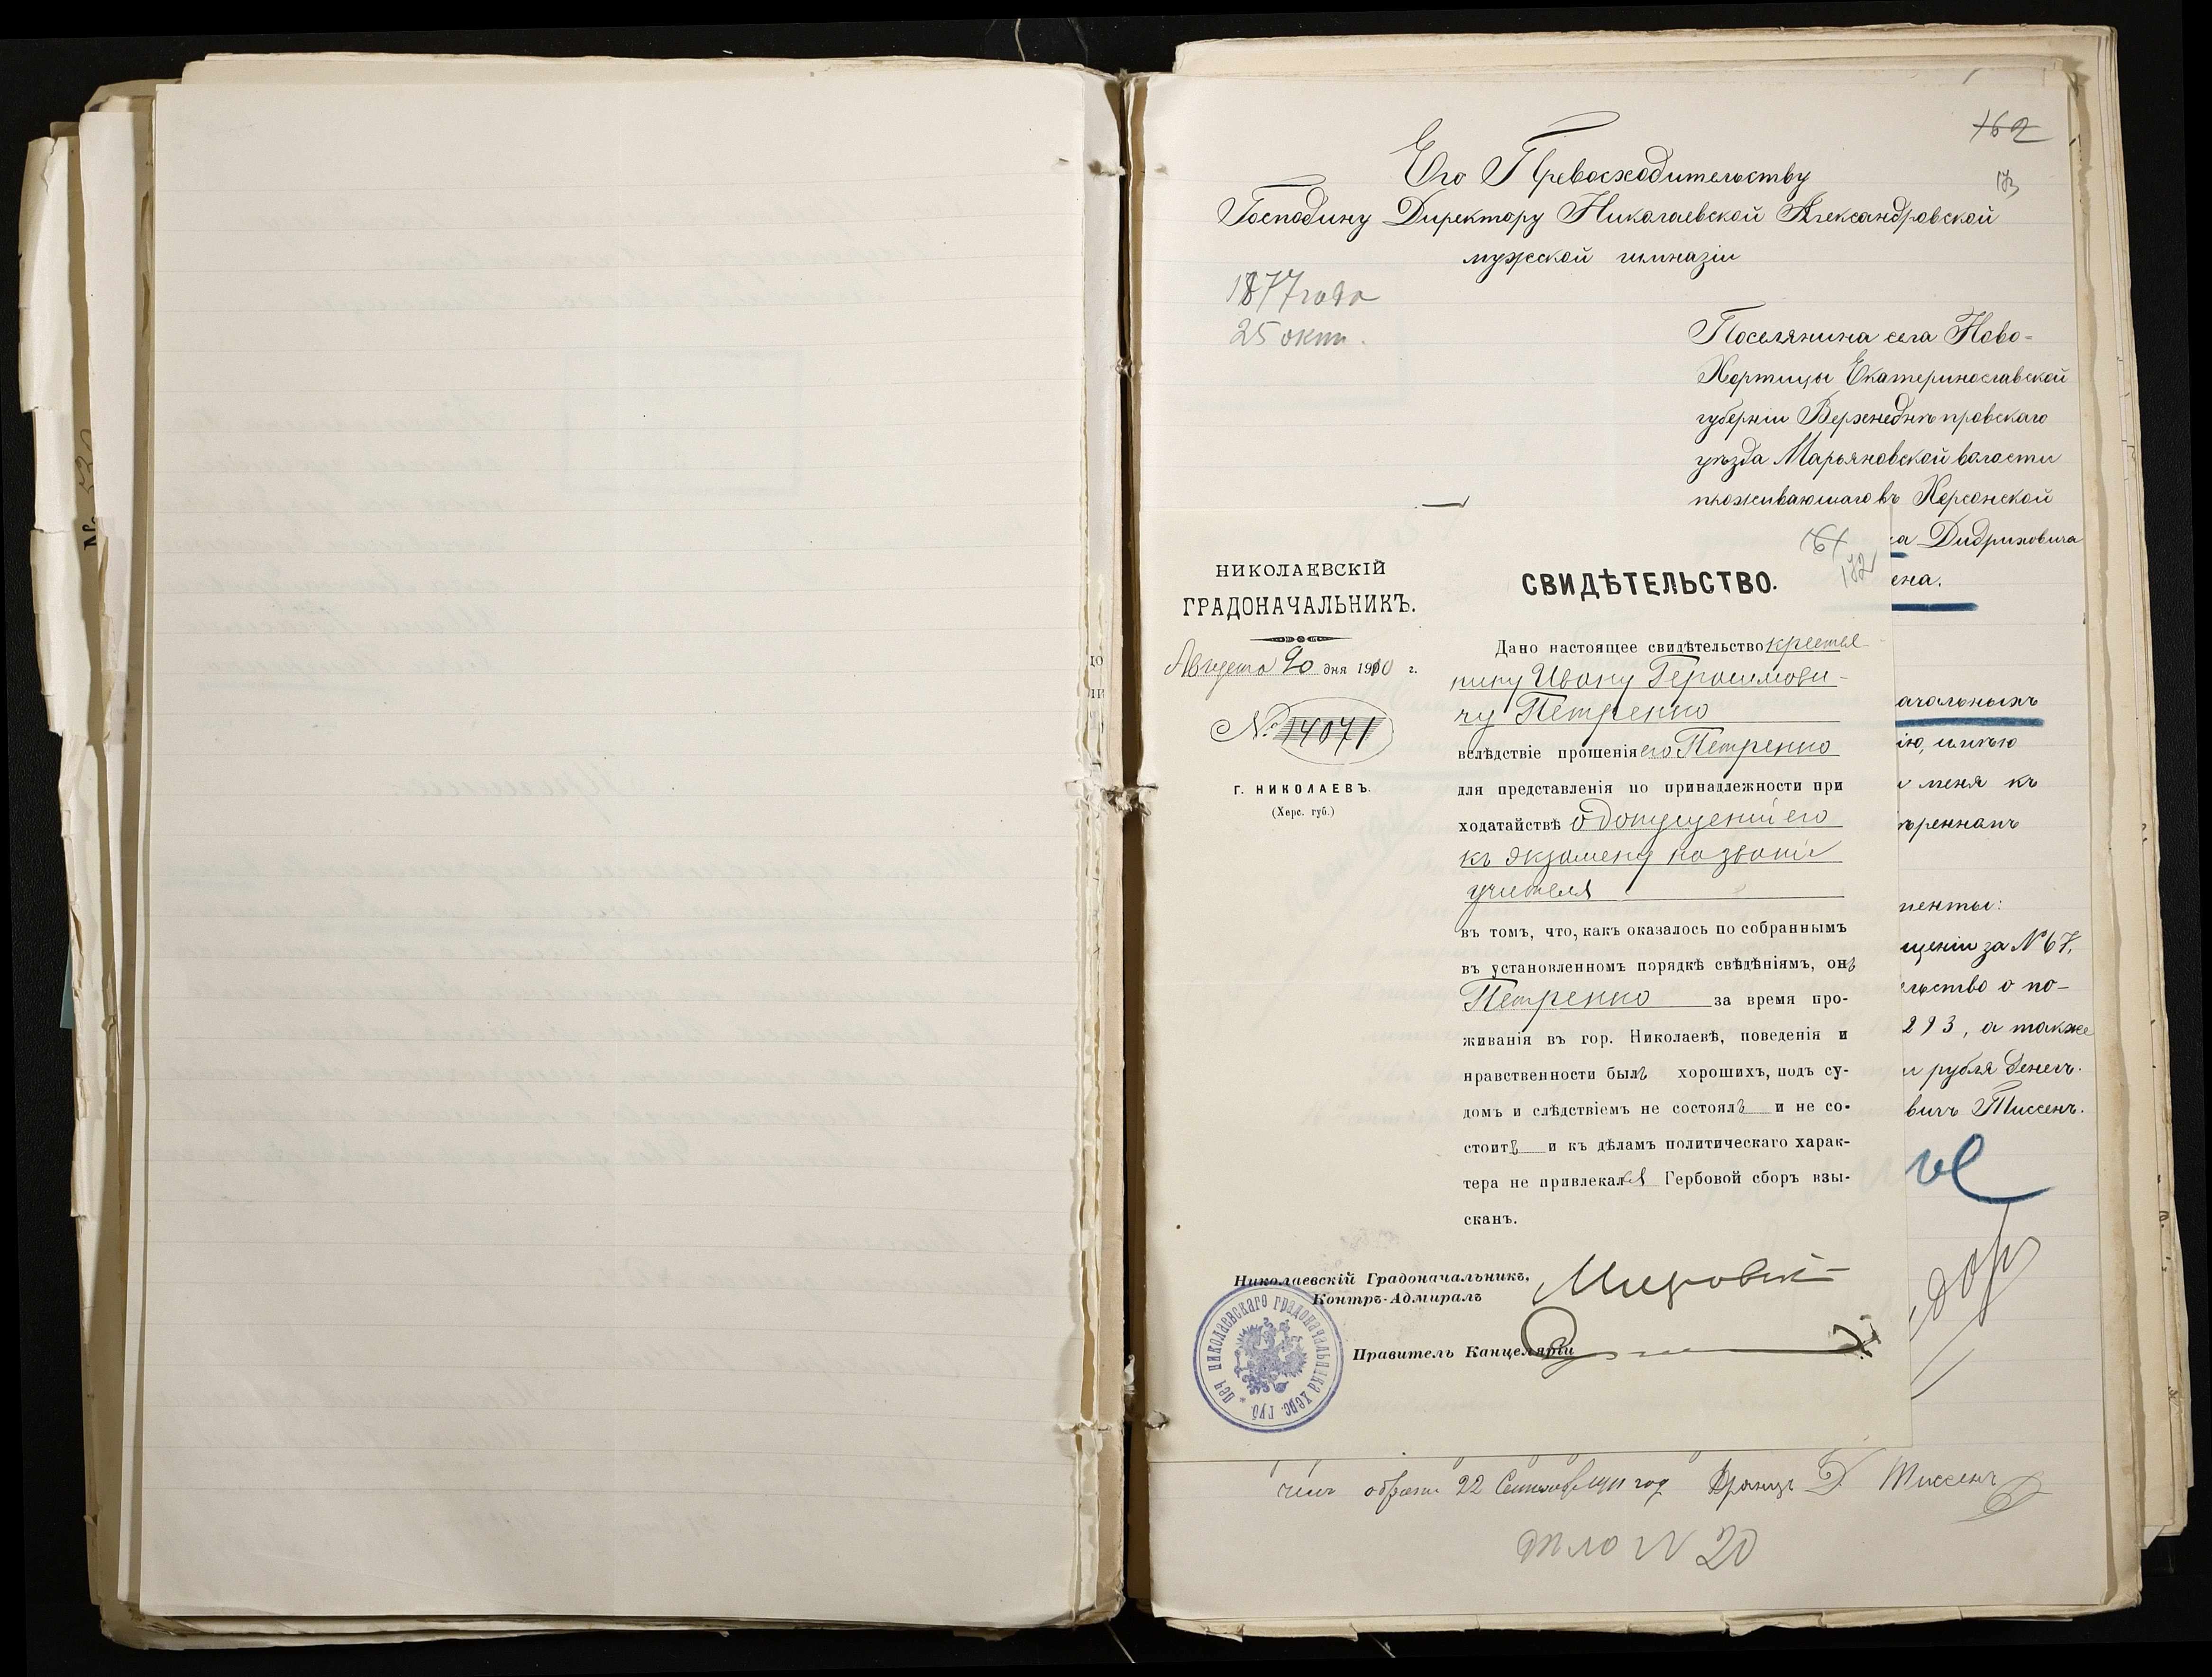 162
173
Его Превосходительству
Господину Директору Николаевской Александровской
мужской гимназіи
1877 года
25 окт.
Поселянина села Ново-
Хортицы Екатеринославской
губерніи Верхнеднѣпровскаго
уѣзда Марьяновской волости
проживающаго въ Херсонской
а Дидриховича
ена.
ачальныхъ
ію, имѣю
меня къ
ѣреннахъ
менты:
щеніи за № 67,
ельство о по-
293, а также
и рубля денегъ.
вичъ Тиссенъ.
161
172
НИКОЛАЕВСКІЙ
ГРАДОНАЧАЛЬНИКЪ.
Августа 20 дня 1910 г.
№ 14071
Г. НИКОЛАЕВЪ.
(Херс. губ.)
СВИДѢТЕЛЬСТВО.
Дано настоящее свидѣтельство крестья
нину Ивану Герасимови-
чу Петренко
вслѣдствіе прошенія его Петренко
для представленія по принадлежности при
ходатайствѣ о допущеніи его
къ экзамену на званіе
учителя
въ томъ, что, какъ оказалось по собраннымъ
въ установленномъ порядкѣ свѣдѣніямъ, онъ
Петренко за время про-
живанія въ гор. Николаевѣ, поведенія и
нравственности былъ хорошихъ, подъ су-
домъ и слѣдствіемъ не состоялъ и не со-
стоитъ и къ дѣламъ политическаго харак-
тера не привлекался Гербовой сборъ взы-
сканъ.
Николаевскій Градоначальникъ,
Контръ-Адмиралъ
Правитель Канцеляріи
печ николаевскаго градоначальника херс. губ.
обратно 22 Сентября 1911 год Францъ Д Тиссенъ
дѣло № 20